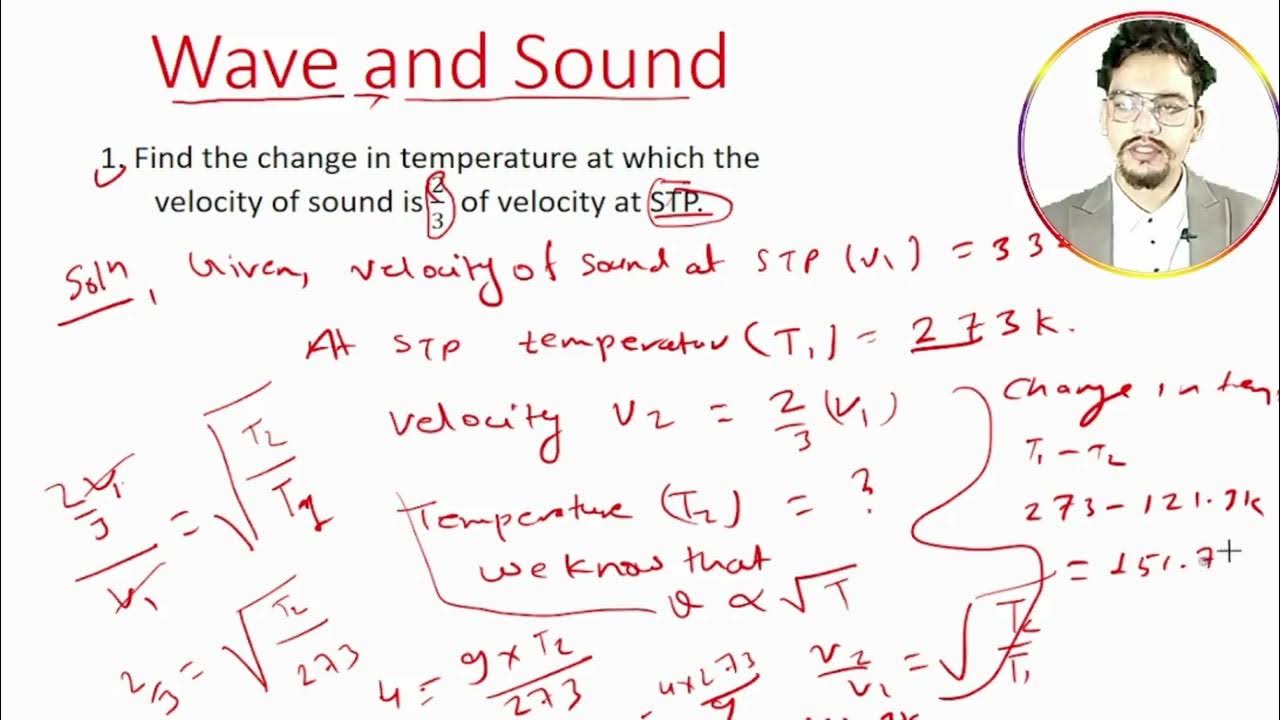 Wave and Sound
1. Find the change in temperature at which the
velocity of sound is 2/3 of velocity at STP.
Solⁿ, Given, velocity of sound at STP (v₁) = 33
At STP temperatur (T₁) = 273 K.
velocity v₂ = 2/3 (v₁)
Temperature (T₂) = ?
we know that
v ∝ √T
v₂/v₁ = √T₂/T₁
2v₁/3 / v₁ = √T₂/T₁
2/3 = √T₂/273
4 = 9 × T₂/273
= 4×273/9
Change in tem
T₁ - T₂
273 - 121.3K
= 151.7